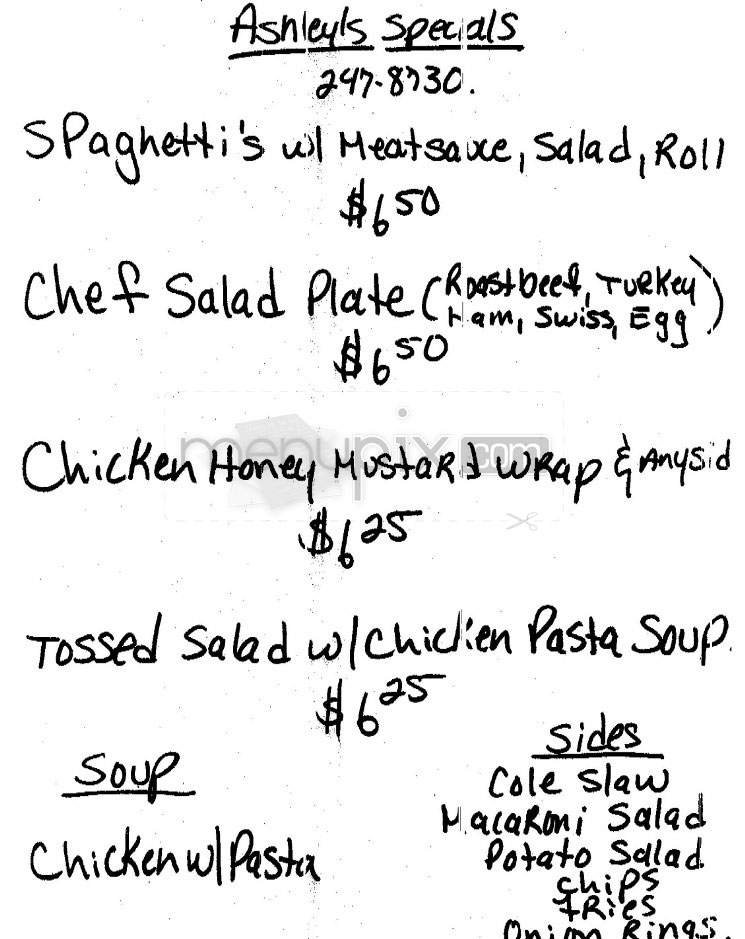 Ashley's Specials
247-8730.
Spaghetti's w/ Meatsauce, Salad, Roll
$6 50
Chef Salad Plate (Roastbeef, Turkey
Ham, Swiss, Egg)
$6 50
menupix.com
Chicken Honey Mustard Wrap & Any Sid
$6 25
Tossed Salad w/ Chicken Pasta Soup.
$6 25
Soup
Chicken w/ Pasta
Sides
Cole Slaw
Macaroni Salad
Potato Salad
Chips
Fries
Onion Rings.